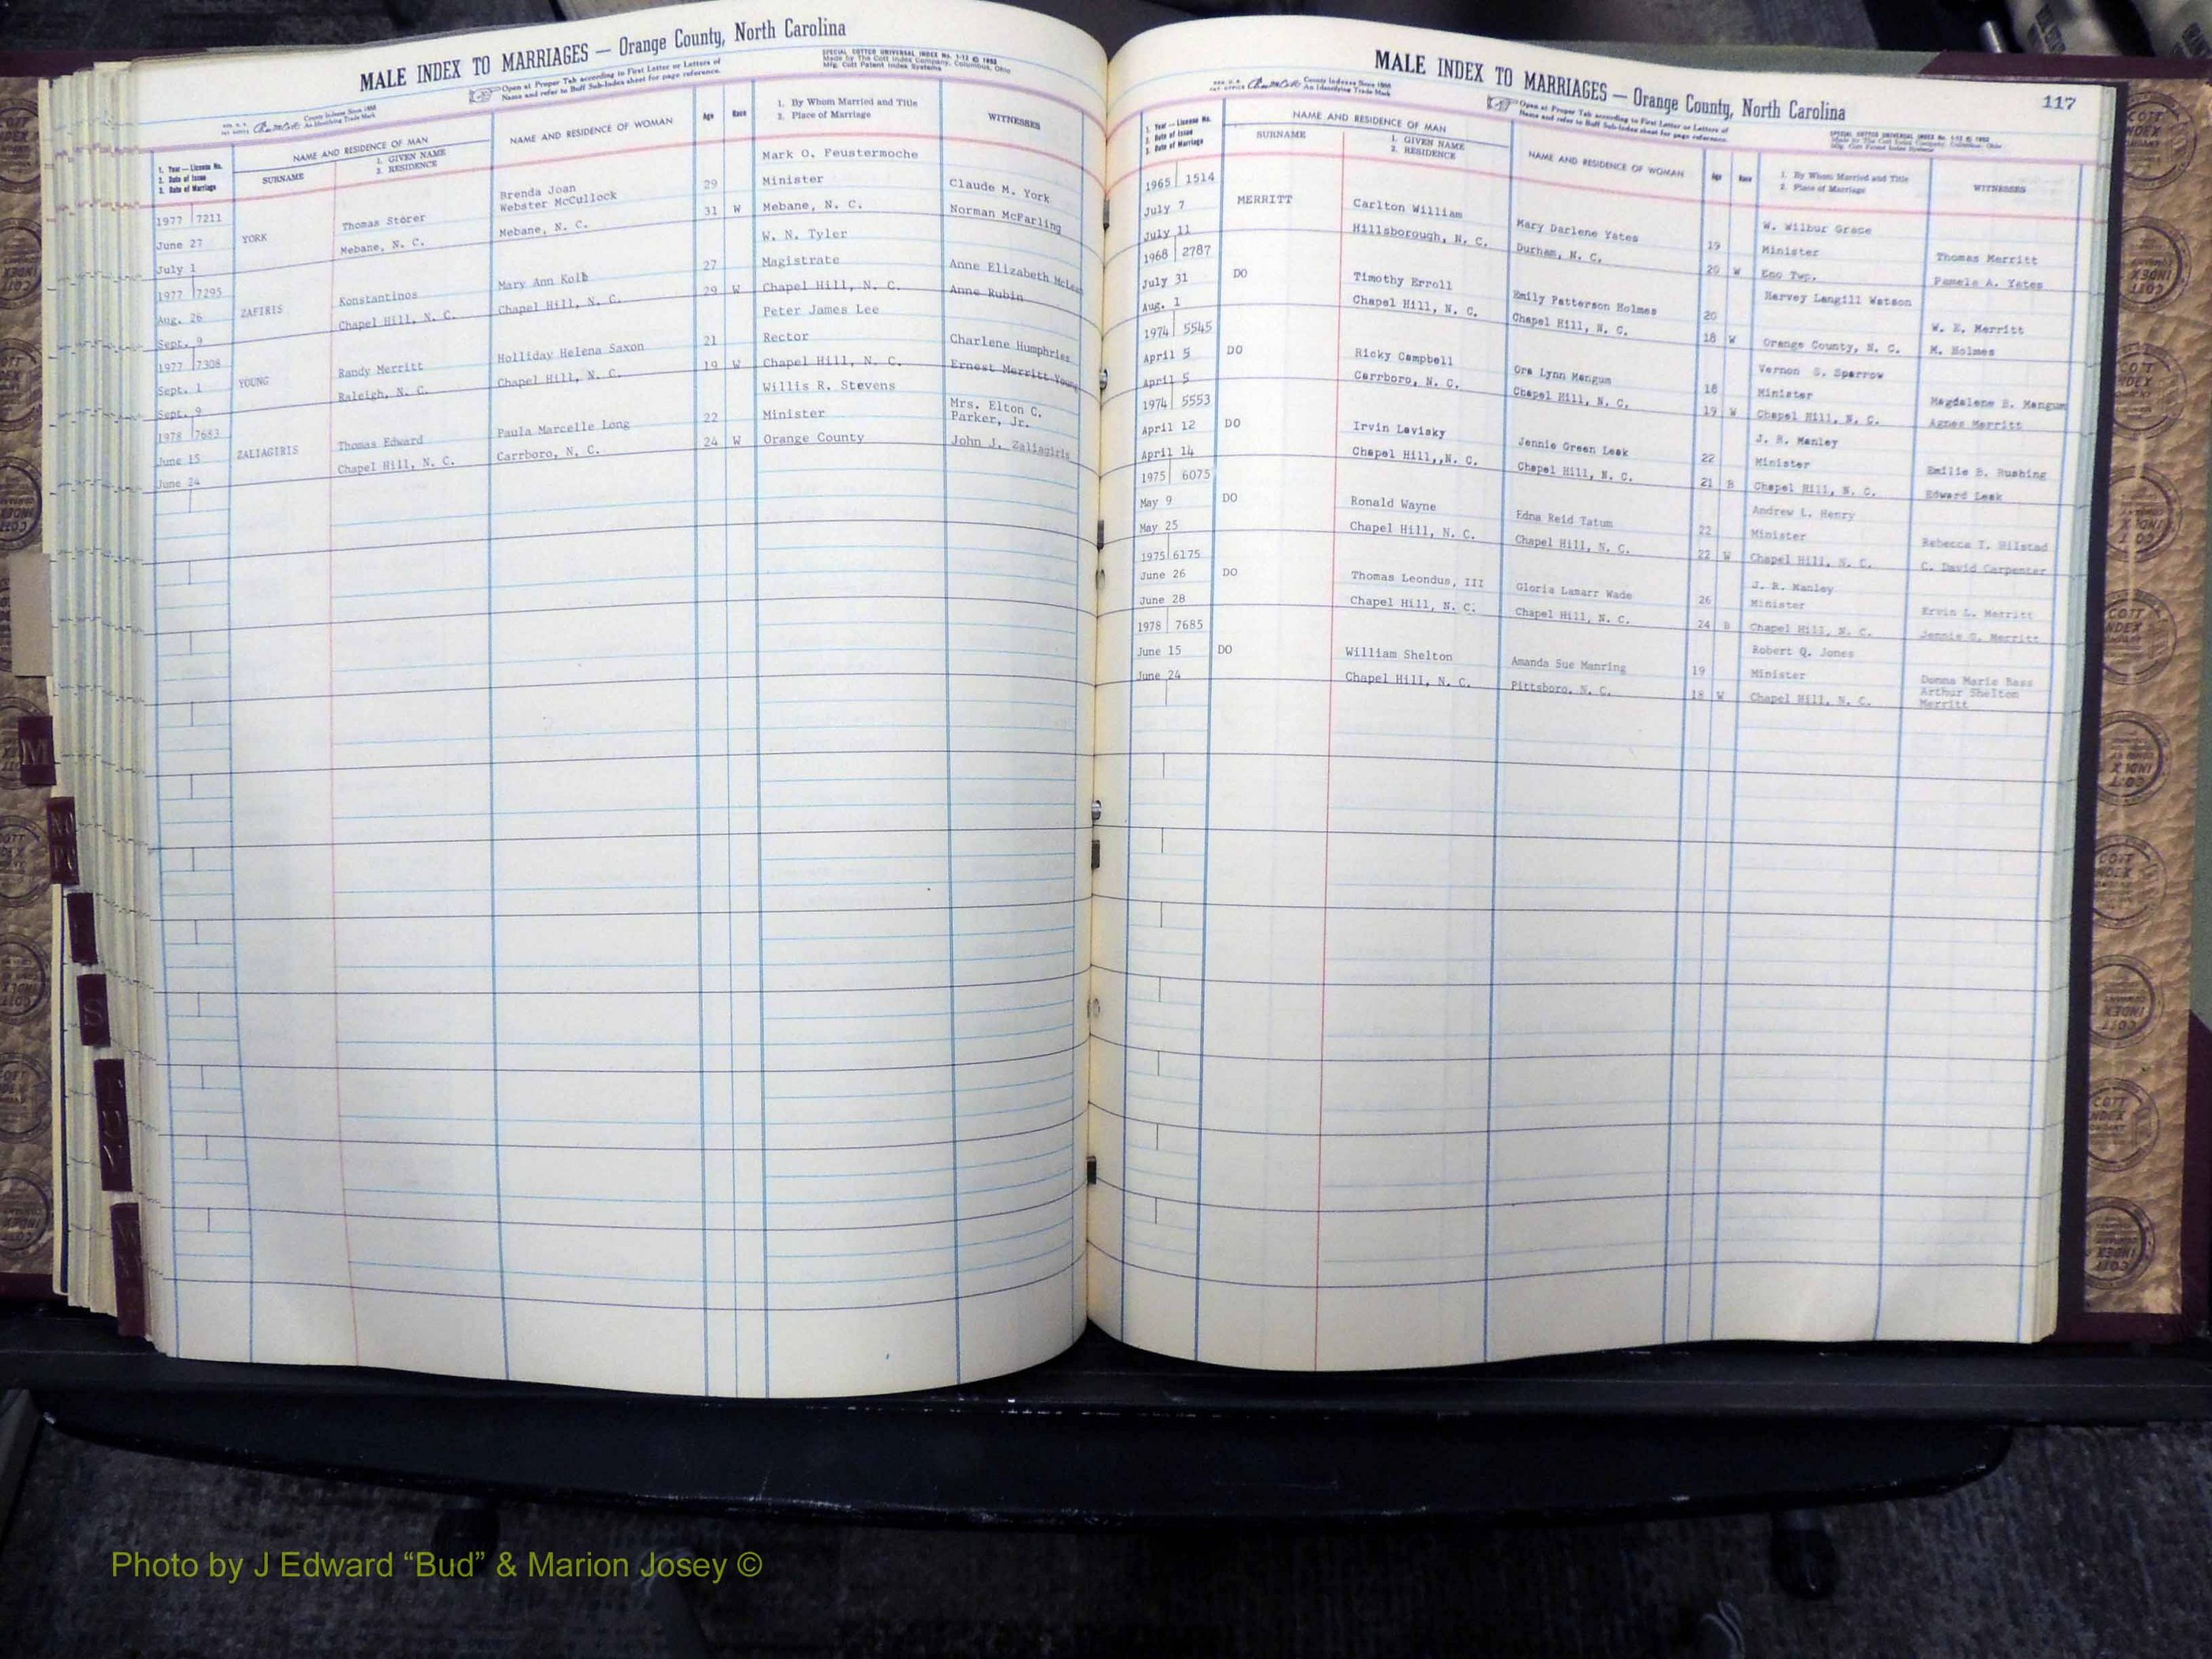 MALE INDEX TO MARRIAGES — Orange County, North Carolina
Open at Proper Tab according to First Letter or Letters of
Name and refer to Buff Sub-Index sheet for page reference.
SPECIAL COTTCO UNIVERSAL INDEX No. 1-12 © 1952
Made by The Cott Index Company, Columbus, Ohio
Mfg. Cott Patent Index Systems
County Indexes Since 1888
An Identifying Trade Mark
1. Year — License No.
2. Date of Issue
3. Date of Marriage
NAME AND RESIDENCE OF MAN
SURNAME
1. GIVEN NAME
2. RESIDENCE
NAME AND RESIDENCE OF WOMAN
Age
Race
1. By Whom Married and Title
2. Place of Marriage
WITNESSES
1977 7211
June 27
July 1
YORK
Thomas Storer
Mebane, N. C.
Brenda Joan
Webster McCullock
Mebane, N. C.
29
31 W
Mark O. Feustermoche
Minister
Mebane, N. C.
Claude M. York
Norman McFarling
1977 7295
Aug. 26
Sept. 9
ZAFIRIS
Konstantinos
Chapel Hill, N. C.
Mary Ann Kolb
Chapel Hill, N. C.
27
29 W
W. N. Tyler
Magistrate
Chapel Hill, N. C.
Anne Elizabeth McLean
Anne Rubin
1977 7308
Sept. 1
Sept. 9
YOUNG
Randy Merritt
Raleigh, N. C.
Holliday Helena Saxon
Chapel Hill, N. C.
21
19 W
Peter James Lee
Rector
Chapel Hill, N. C.
Charlene Humphries
Ernest Merritt Young
1978 7683
June 15
June 24
ZALIAGIRIS
Thomas Edward
Chapel Hill, N. C.
Paula Marcelle Long
Carrboro, N. C.
22
24 W
Willis R. Stevens
Minister
Orange County
Mrs. Elton C.
Parker, Jr.
John J. Zaliagiris
MALE INDEX TO MARRIAGES — Orange County, North Carolina
117
County Indexes Since 1888
An Identifying Trade Mark
Open at Proper Tab according to First Letter or Letters of
Name and refer to Buff Sub-Index sheet for page reference.
1. Year — License No.
2. Date of Issue
3. Date of Marriage
NAME AND RESIDENCE OF MAN
SURNAME
1. GIVEN NAME
2. RESIDENCE
NAME AND RESIDENCE OF WOMAN
Age
Race
1. By Whom Married and Title
2. Place of Marriage
WITNESSES
1965 1514
July 7
July 11
MERRITT
Carlton William
Hillsborough, N. C.
Mary Darlene Yates
Durham, N. C.
19
20 W
W. Wilbur Grace
Minister
Eno Twp.
Thomas Merritt
Pamela A. Yates
1968 2787
July 31
Aug. 1
DO
Timothy Erroll
Chapel Hill, N. C.
Emily Patterson Holmes
Chapel Hill, N. C.
20
18 W
Harvey Langill Watson
Orange County, N. C.
W. E. Merritt
M. Holmes
1974 5545
April 5
April 5
DO
Ricky Campbell
Carrboro, N. C.
Ora Lynn Mangum
Chapel Hill, N. C.
18
19 W
Vernon S. Sparrow
Minister
Chapel Hill, N. C.
Magdalene B. Mangum
Agnes Merritt
1974 5553
April 12
April 14
DO
Irvin Lavisky
Chapel Hill,,N. C.
Jennie Green Leak
Chapel Hill, N. C.
22
21 B
J. R. Manley
Minister
Chapel Hill, N. C.
Emilie B. Rushing
Edward Leak
1975 6075
May 9
May 25
DO
Ronald Wayne
Chapel Hill, N. C.
Edna Reid Tatum
Chapel Hill, N. C.
22
22 W
Andrew L. Henry
Minister
Chapel Hill, N. C.
Rebecca T. Hilstad
C. David Carpenter
1975 6175
June 26
June 28
DO
Thomas Leondus, III
Chapel Hill, N. C.
Gloria Lamarr Wade
Chapel Hill, N. C.
26
24 B
J. R. Manley
Minister
Chapel Hill, N. C.
Ervin L. Merritt
Jennie G. Merritt
1978 7685
June 15
June 24
DO
William Shelton
Chapel Hill, N. C.
Amanda Sue Manring
Pittsboro, N. C.
19
18 W
Robert Q. Jones
Minister
Chapel Hill, N. C.
Donna Marie Bass
Arthur Shelton
Merritt
M
S
Photo by J Edward “Bud” & Marion Josey ©